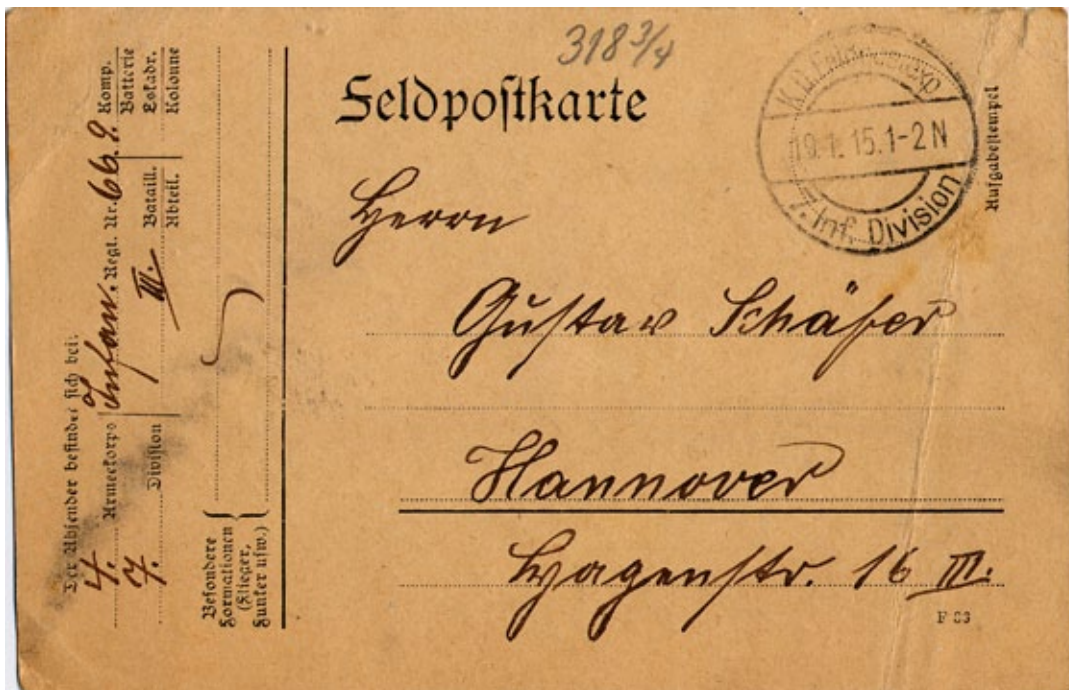 318 3/4
Feldpostkarte
K.D. Feldpostexp.
19.1.15.1-2N
7. Inf. Division
Aufgabestempel
Herrn
Gustav Schäfer
Hannover
Hagenstr. 16 III.
F 33
Der Absender befindet sich bei:
4. Armeekorps Infan. Regt. Nr. 66. 9. Komp.
Batterie
7. Division III. Bataill. Eskadr.
Abteil. Kolonne
Besondere
Formationen
(Flieger,
Funker usw.)